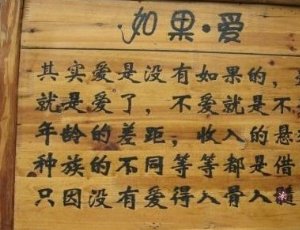 如果·爱
其实爱是没有如果的，
就是爱了，不爱就是不
年龄的差距，收入的悬
种族的不同等等都是借
只因没有爱得入骨入髓